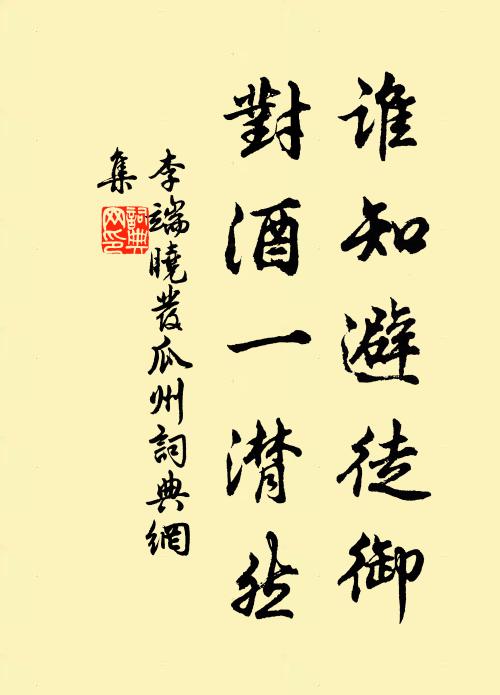 誰知避徒御
對酒一潸然
李端曉發瓜州詞典網
集
詞典
网印